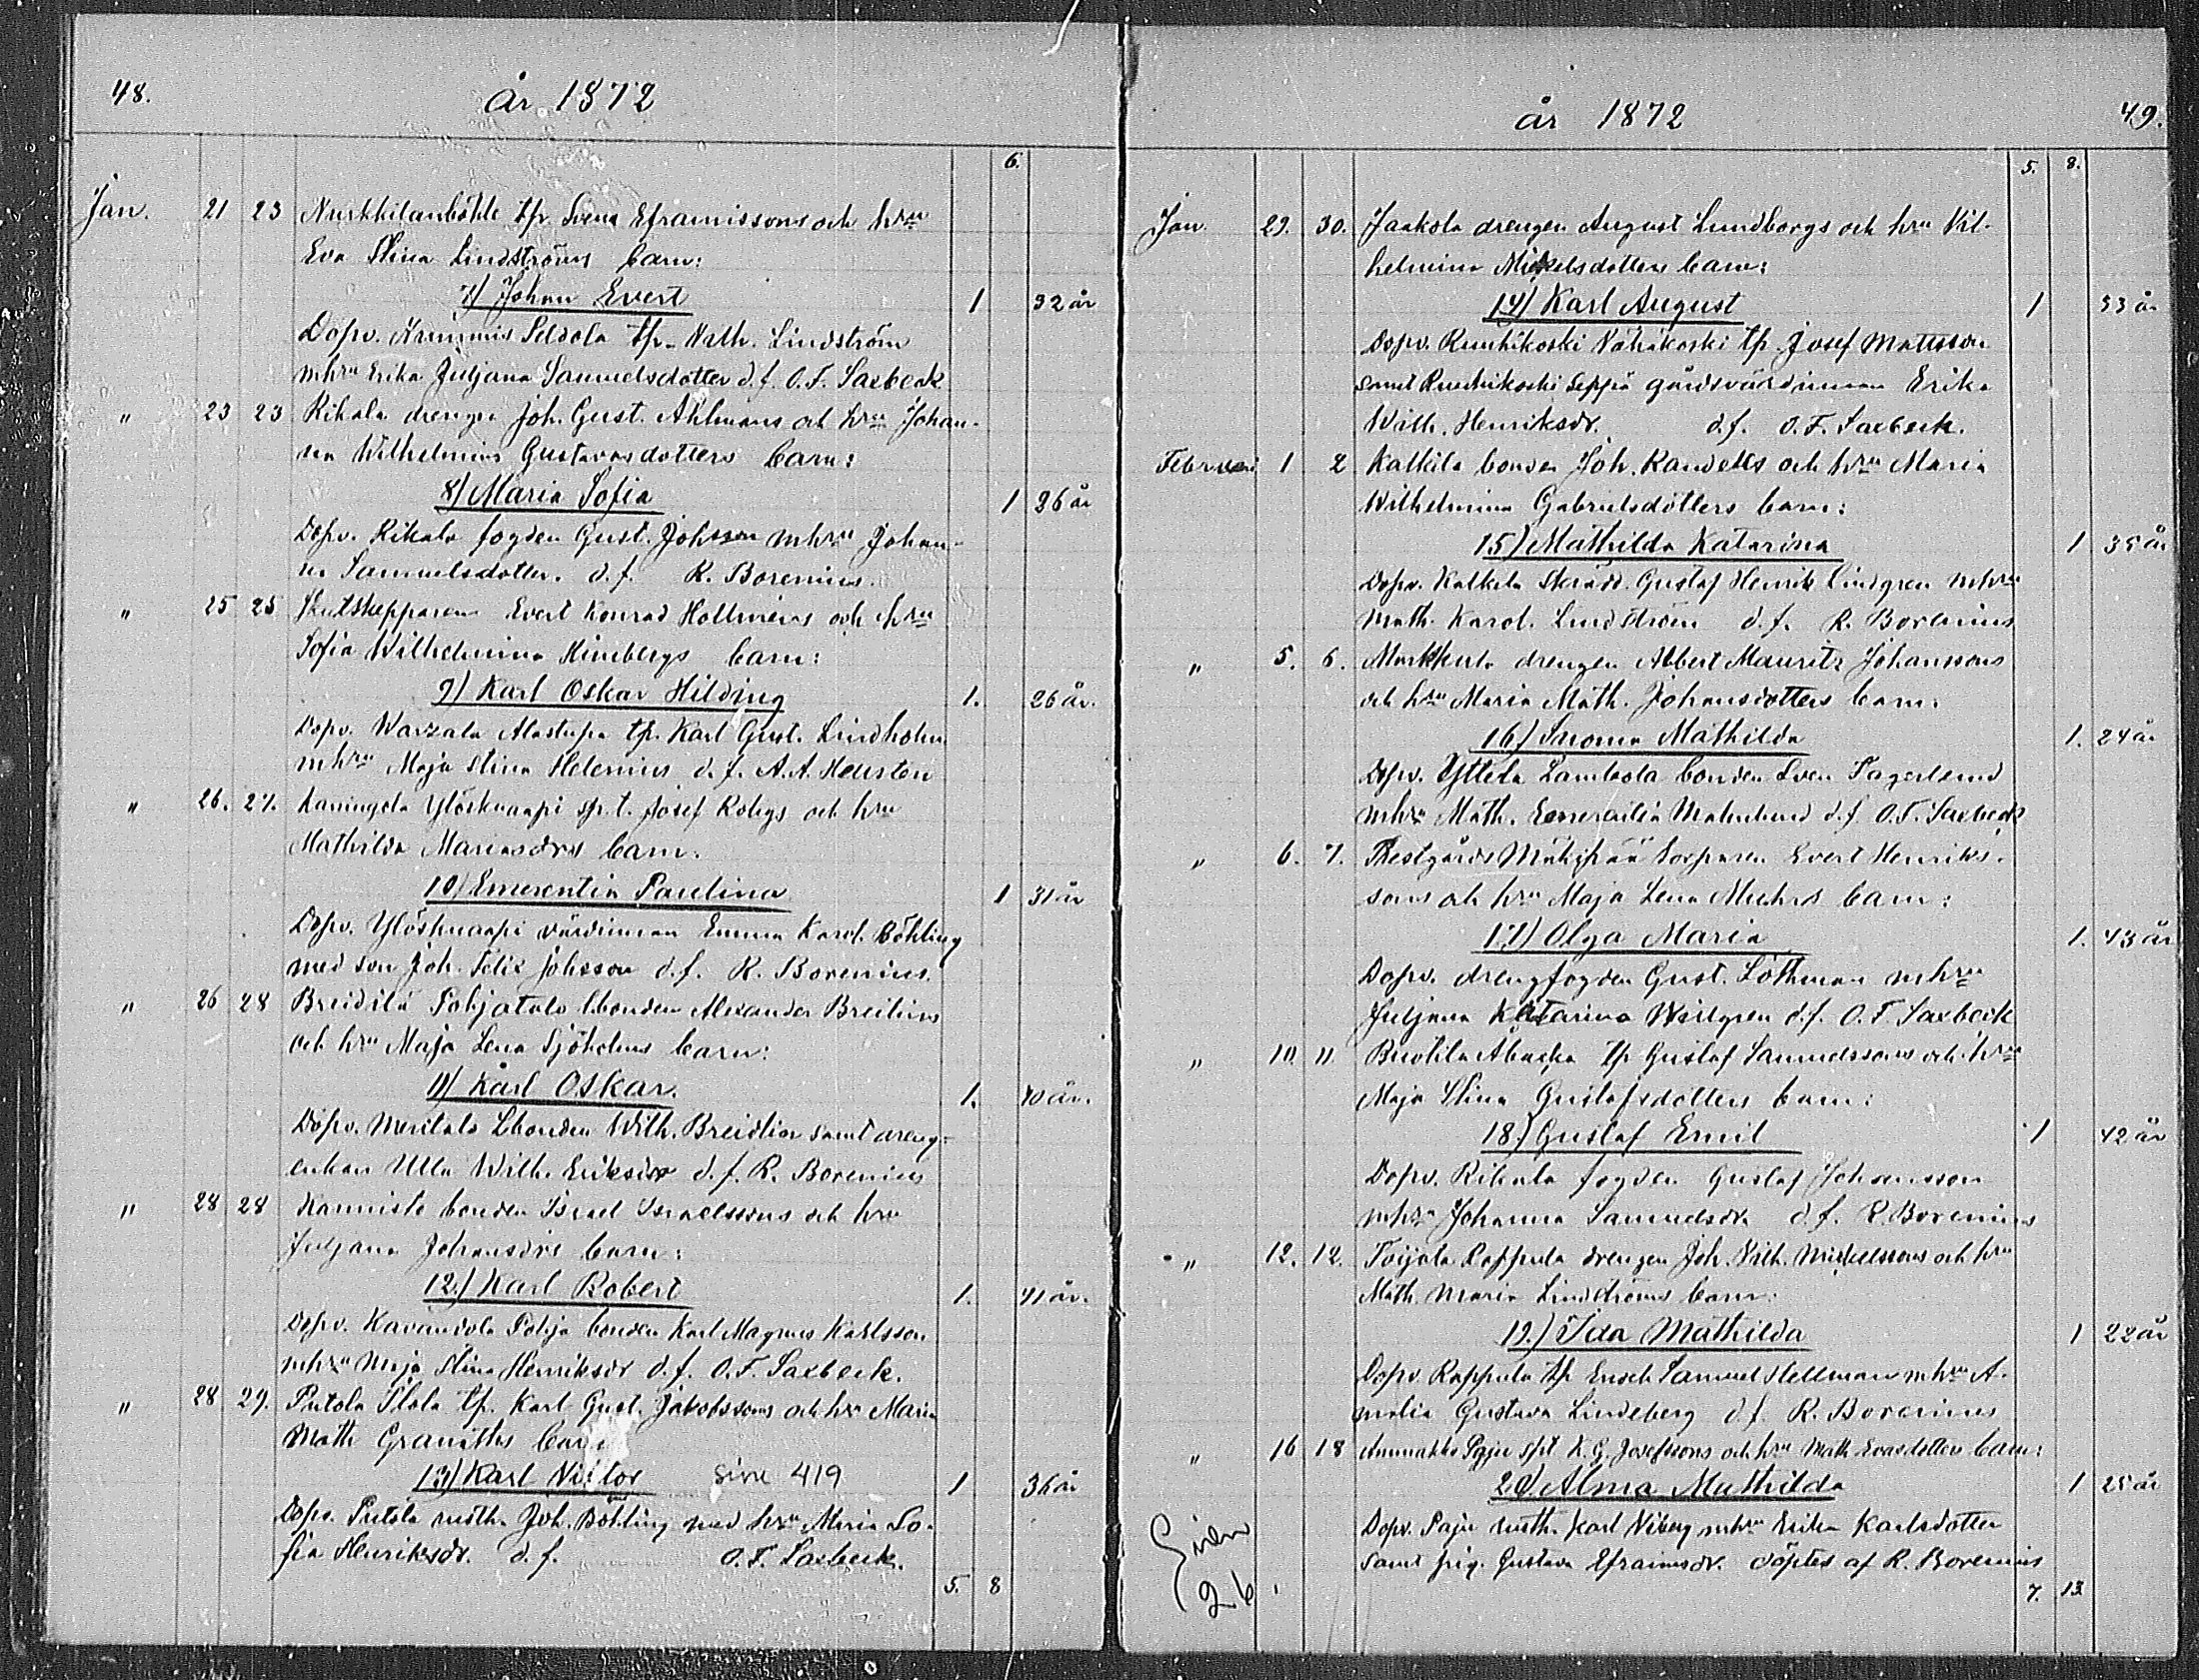 48.
år 1872
6.
Jan. 21 23 Nurkkilanböhle tp. Svena Eframissons och hru
Eva Stina Lindströms barn:
7) Johan Evert 1 32 år
Dopv. Seldola tp. Wilh. Lindström
mhru Erika Juljana Samuelsdotter d.f. O.F. Saxbeck
" 23 23 Rikala drengen Joh. Gust. Ahlmans och hru Johan-
na Wilhelmina Gustavasdotters barn:
8) Maria Sofia 1 26 år
Dopv. Rikala fogden Gust. Johsson mhru Johan-
na Samuelsdotter. d.f. R. Borenius.
" 25 25 Skutskepparen Evert Konrad Hollmens och hru
Sofia Wilhelmina Himbergs barn:
9) Karl Oskar Hilding 1. 26 år.
Dopv. Warzala Alastupa tp. Karl Gust. Lindholm
mhru Maja Stina Helenius d.f. A.A. Heurten
" 26. 27. Kaningola Ylösknaapi sp.t. Josef Kobys och hru
Mathilda Mariasdrs barn.
10) Emerentia Paulina 1 31 år
Dopv. Ylösknaapi värdinnan Emma Karol. Böhling
med son Joh. Felix Johsson d.f. R. Borenius.
" 26 28 Breidilä Pohjatalo lbonden Alexander Breilins
och hru Maja Lena Sjöholms barn:
11) Karl Oskar. 1. 40 år.
Dopv. Meritalo Lbonden Wilh. Breidlin samt dreng-
enkan Ulla Wilh. Eriksdr d.f. R. Borenius
" 28 28 Kanniste bonden Israel Israelssons och hru
Juljana Johansdrs barn:
12.) Karl Robert 1. 41 år.
Dopv. Kavandola Pohja bonden Karl Magnus Karlsson
mhru Maja Stina Henriksdr d.f. O.F. Saxbeck.
" 28 29. Putola Ilola tp. Karl Gust. Jakobssons och hru Maria
Math Graniths barn
13) Karl Viktor sivu 419 1 36 år
Dopv. Putola rusth. Joh. Böhling med hru Maria So-
fia Henriksdr. d.f. O.F. Saxbeck.
5. 8
år 1872
49.
5. 8.
Jan. 29. 30. Jaakola drengen August Lundborgs och hru Vil-
helmina Mickelsdotters barn:
14) Karl August 1 33 år
Dopv. Ruuhikoski Vähäkoski tp. Josef Mattsson
samt Ruuhikoski Seppä gårdsvärdinnan Erika
Wilh. Henriksdr. d.f. O.F. Saxbeck.
Februari 1 2 Kalkila bonden Joh. Randells och hru Maria
Wilhelmina Gabrielsdotters barn:
15) Mathilda Katarina 1 35 år
Dopv. Kalkila Skrädd. Gustaf Henrik Lindgren mhru
Math. Karol. Lindström d.f. R. Borenius
" 5. 6. Markkula drengen Albert Mauritz Johanssons
och hru Maria Math. Johansdotters barn:
16) Suoma Mathilda 1. 24 år
Dopv. Yttela Lambola bonden Sven Fagerlund
mhru Math. Esmeralia Malmlund d.f. O.F. Saxbeck
" 6. 7. Prestgårds Mäkipää torparen Evert Henriks-
sons och hru Maja Lena Michrs barn:
17) Olga Maria 1. 43 år
Dopv. drengfogden Gust. Löthman mhru
Juljana Katarina Wallgren d.f. O.F. Saxbeck
" 10. 11. Buotila Abacka tp Gustaf Samuelssons och hru
Maja Stina Gustafsdotters barn:
18.) Gustaf Emil 1 42 år
Dopv. Rikala fogden Gustaf Johansson
mhru Johanna Samuelsdr. d.f. R. Borenius
" 12. 12. Toijola Pappula drengen Joh. Wilh. Mickelssons och hru
Math. Maria Lindströms barn:
19.) Ida Mathilda 1 22 år
Dopv. Pappula tp Enoch Samuel Hellman mhru A-
malia Gustava Lindeberg d.f. R. Borenius
" 16 18 Ammakko Paju spt K.G. Josefssons och hru Math Evasdotters barn:
20) Alma Mathilda 1 25 år
Dopv. Paju rusth. Karl Viberg mhru Erika Karlsdotter
samt pig. Gustava Efraimsdr. döptes af R. Borenius
7. 13
Siven
26